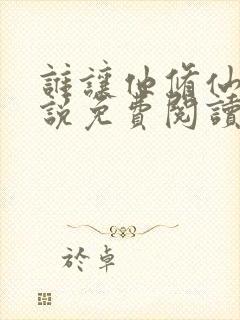 誰讓他修仙
說免費閱讀
於卓